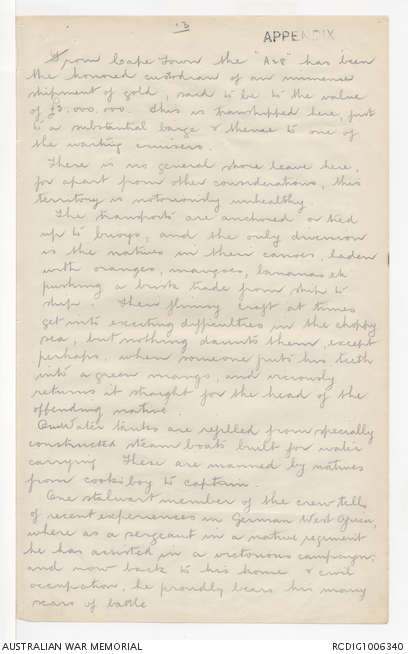 3
APPENDIX
From Cape Town the "A28" has been
the honored custodian of an immense
shipment of gold, said to be to the value
of £3.000.000. This is transhipped here, first
to a substantial barge & thence to one of
the waiting cruisers.
There is no general shore leave here,
for apart from other considerations, this
territory is notoriously unhealthy.
The transports are anchored or tied
up to buoys, and the only diversion
is the natives in their canoes, laden
with oranges, mangoes, bananas etc
pushing a brisk trade from ship to
ship. Their flimsy craft at times
get into exciting difficulties in the choppy
sea, but nothing daunts them, except
perhaps, when someone puts his teeth
into a green mango, and viciously
returns it straight for the head of the
offending native.
Our water tanks are refilled from specially
constructed steam boats built for water
carrying These are manned by natives
from cook's boy to captain.
One stalwart member of the crew tells
of recent experiences in German West Africa
where as a sergeant in a native regiment
he has assisted in a victorious campaign;
and now back to his home & civil
occupation, he proudly bears his many
scars of battle
AUSTRALIAN WAR MEMORIAL
RCDIG1006340